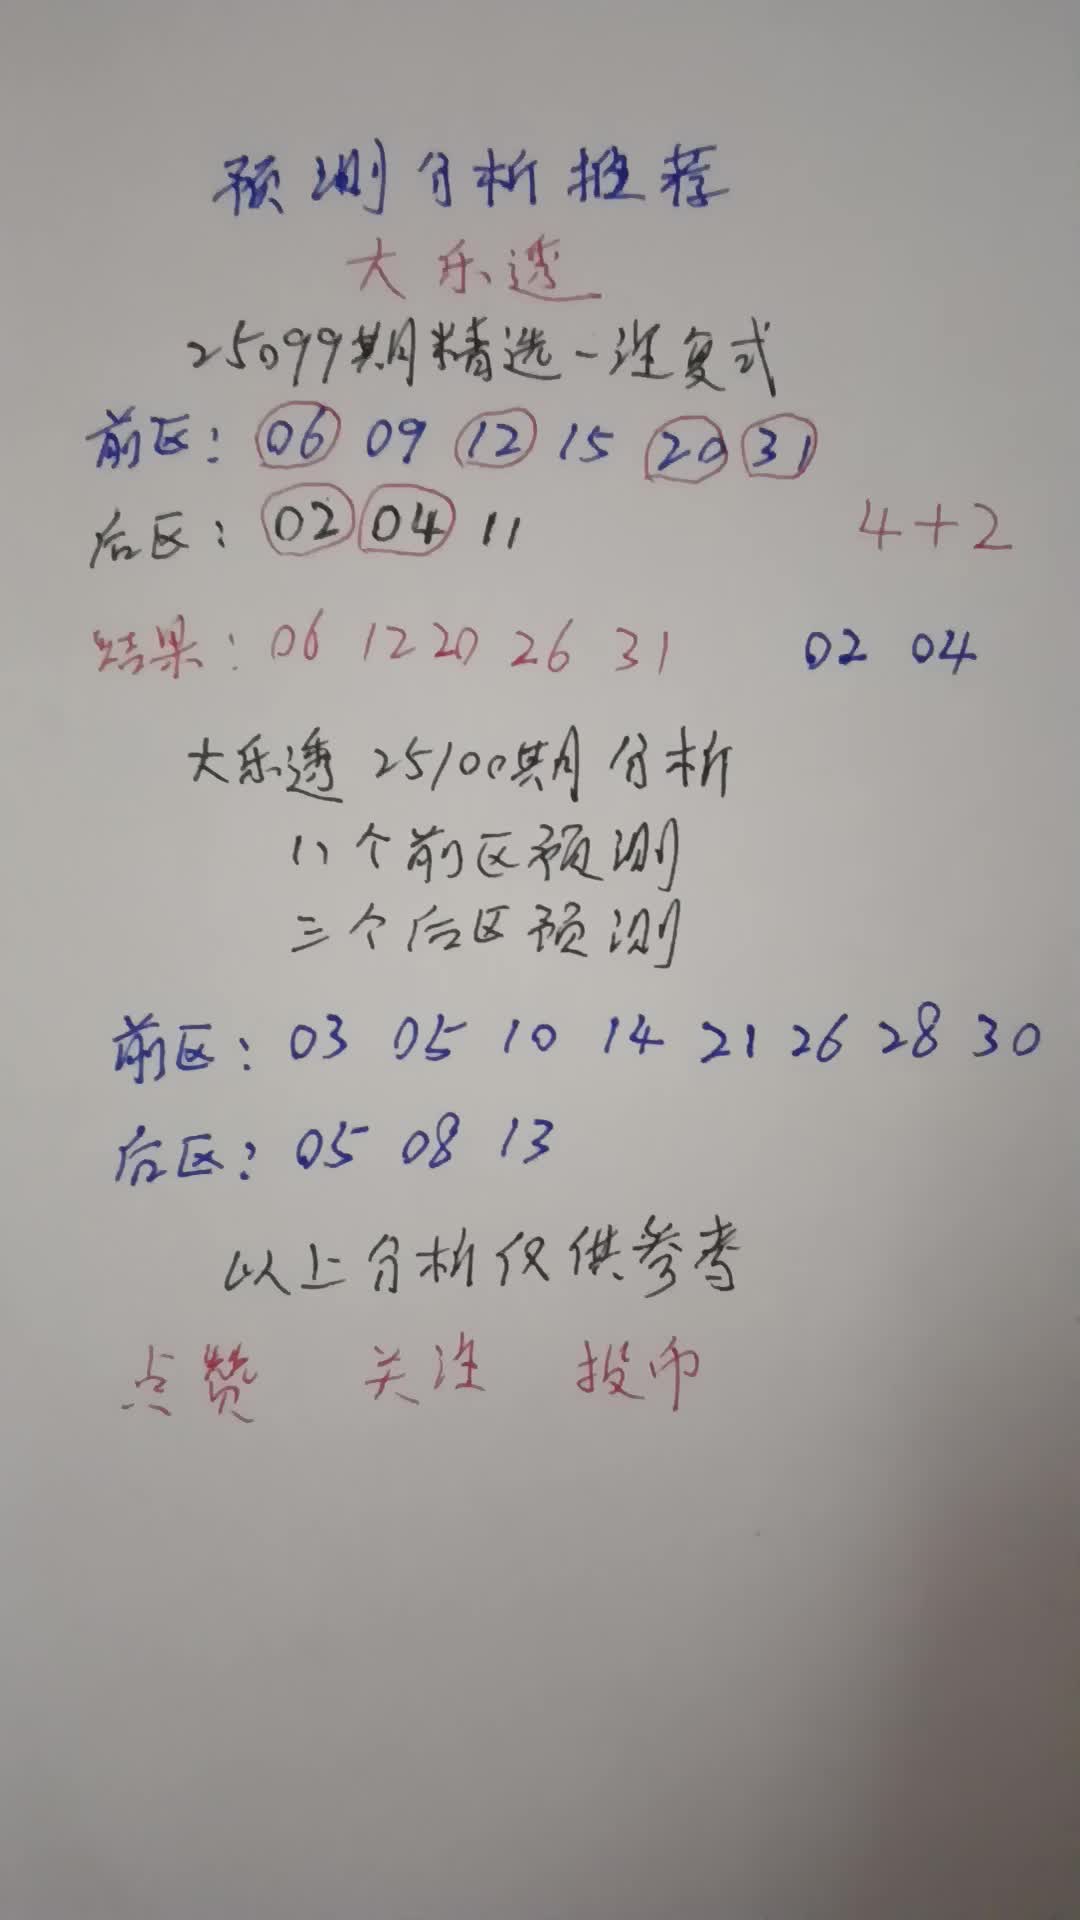 预测分析推荐
大乐透
25099期精选一注复式
前区：06 09 12 15 20 31
后区：02 04 11
4+2
结果：06 12 20 26 31 02 04
大乐透 25100期分析
八个前区预测
三个后区预测
前区：03 05 10 14 21 26 28 30
后区：05 08 13
以上分析仅供参考
点赞 关注 投币